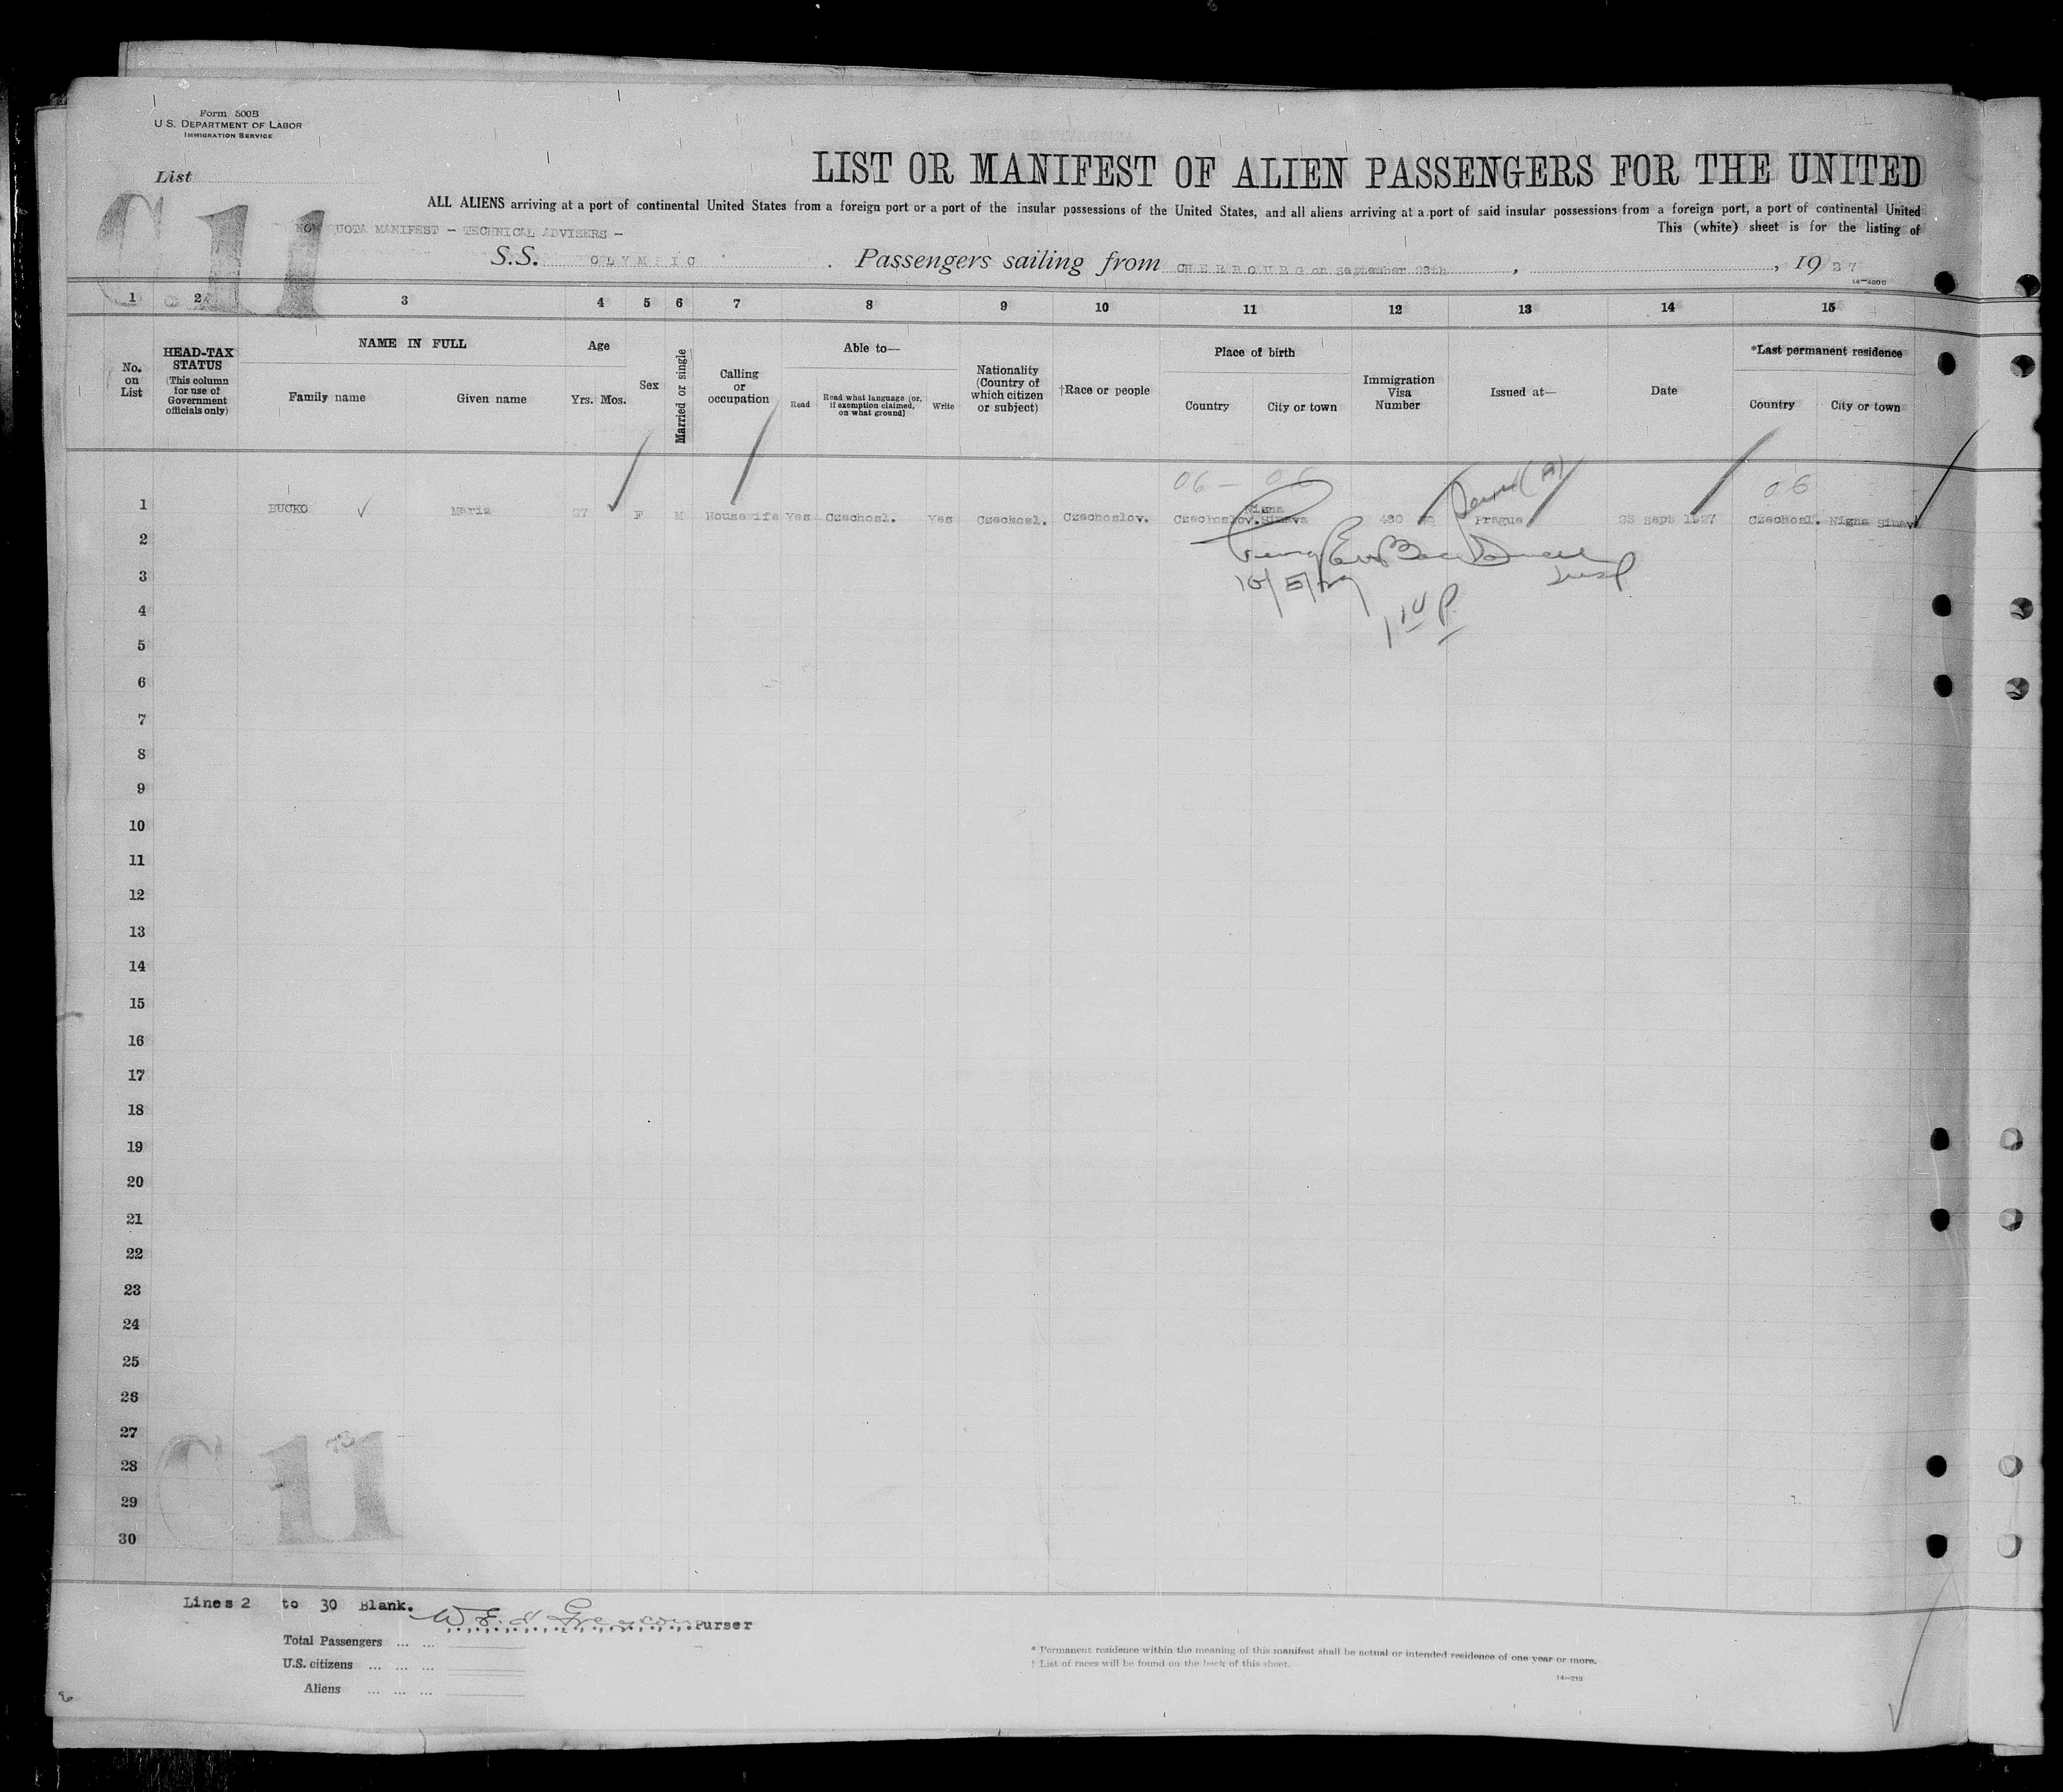 Form 500B
U. S. DEPARTMENT OF LABOR
IMMIGRATION SERVICE
List
C 11
LIST OR MANIFEST OF ALIEN PASSENGERS FOR THE UNITED
ALL ALIENS arriving at a port of continental United States from a foreign port or a port of the insular possessions of the United States, and all aliens arriving at a port of said insular possessions from a foreign port, a port of continental United
This (white) sheet is for the listing of
NON QUOTA MANIFEST - TECHNICAL ADVISERS -
S.S. OLYMPIC. Passengers sailing from CHERBOURG on September 28th , , 1927
14—430B
1 2 3 4 5 6 7 8 9 10 11 12 13 14 15
No. on List
HEAD-TAX STATUS (This column for use of Government officials only)
NAME IN FULL
Family name Given name
Age
Yrs. Mos.
Sex
Married or single
Calling or occupation
Able to—
Read Read what language (or, if exemption claimed, on what ground) Write
Nationality (Country of which citizen or subject)
†Race or people
Place of birth
Country City or town
Immigration Visa Number
Issued at—
Date
*Last permanent residence
Country City or town
06 — 06 06
1 BUCKO Maria 27 F M Housewife Yes Czechosl. Yes Czechosl. Czechoslov. Czechoslov. Nigna Sinava 430 Prague 23 Sept 1927 Czechosl. Nigna Sinav
2
3
4
5
6
7
8
9
10
11
12
13
14
15
16
17
18
19
20
21
22
23
24
25
26
27
28
29
30
C 11
Lines 2 to 30 Blank.
Purser
Total Passengers ... ...
U.S. citizens ... ... ...
Aliens ... ... ...
* Permanent residence within the meaning of this manifest shall be actual or intended residence of one year or more.
† List of races will be found on the back of this sheet.
14—213